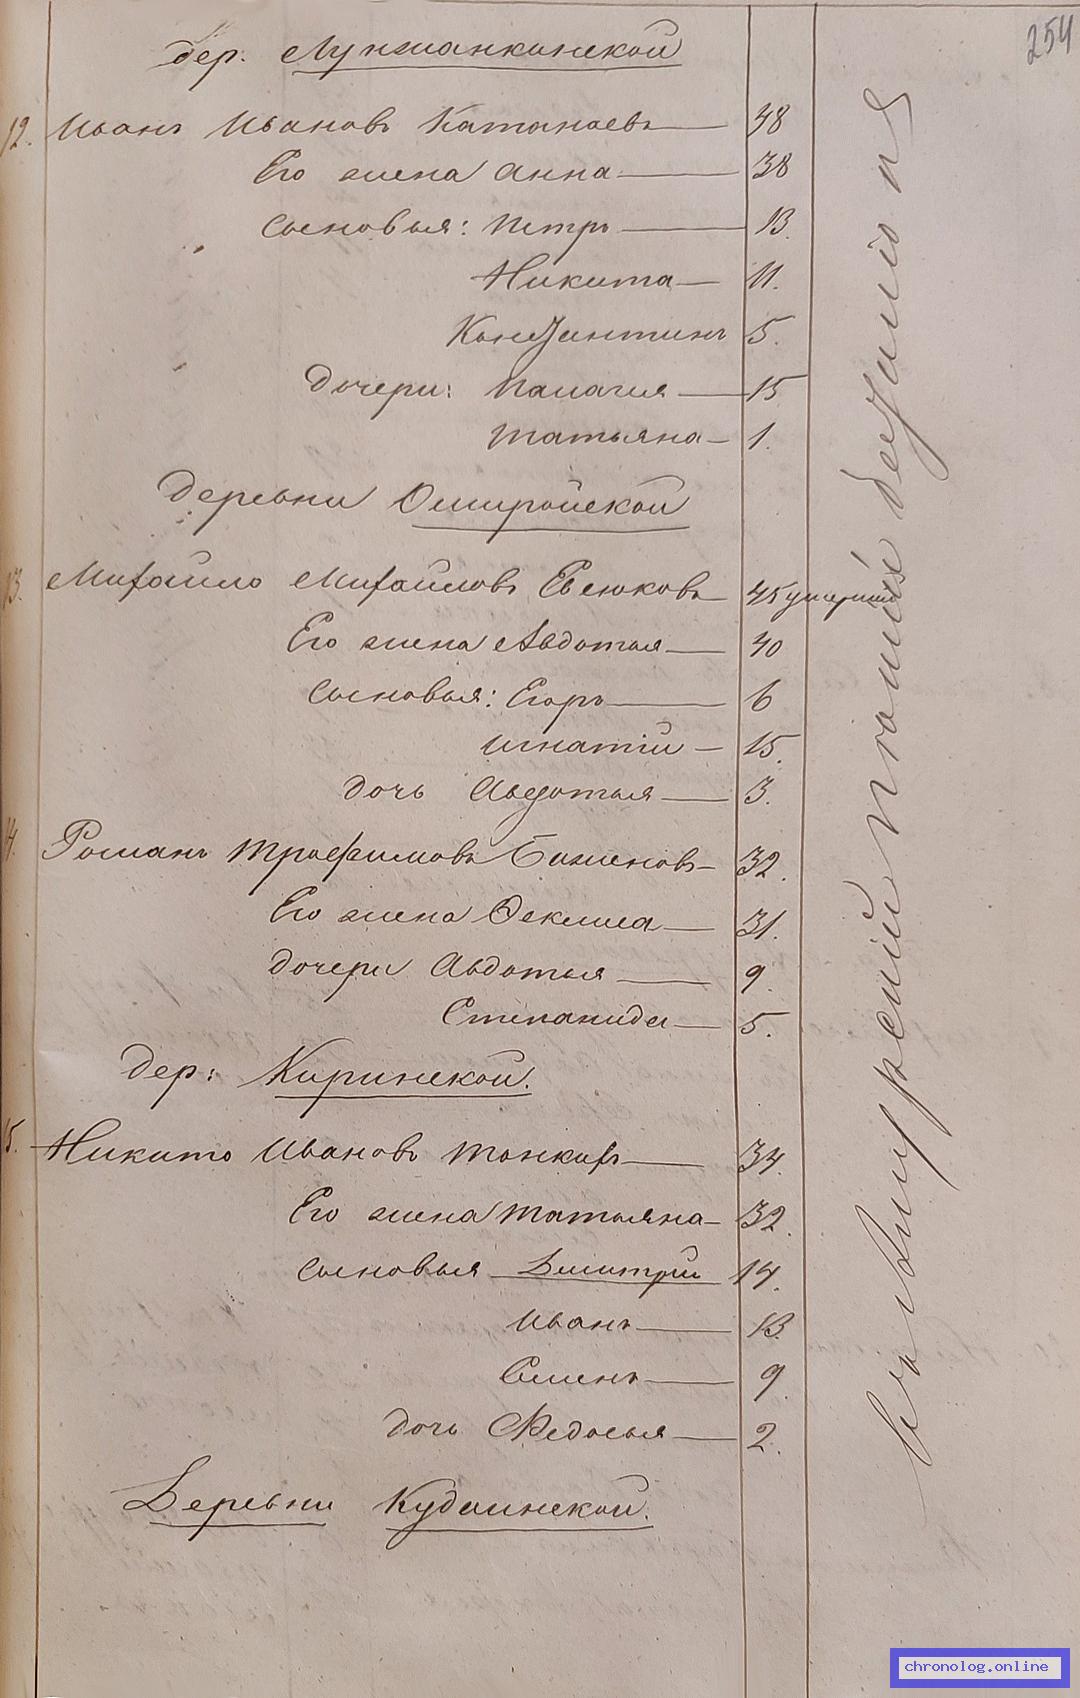 254
дер. Лунжанкинской
12. Иванъ Ивановъ Катанаевъ 48
Его жена Анна 38
Сыновья: Петръ 13.
Никита 11.
Константинъ 5.
Дочери: Палагия 15
Татьяна 1.
Деревни
13. Михайло Михайловъ Евсюковъ 45 умершiй
Его жена Авдотья 40
Сыновья: Егоръ 6
Игнатiй 15.
дочь Авдотья 3.
14. Романъ Трофимовъ Баженовъ 32.
Его жена Фекла 31.
дочери Авдотья 9.
Степанида 5.
Дер: Киринской.
15. Никита Ивановъ Тонкихъ 34.
Его жена Татьяна 32.
Сыновья Дмитрiй 14.
Иванъ 13.
Семенъ 9.
дочь Федосья 2.
Деревни Кудаинской.
chronolog.online